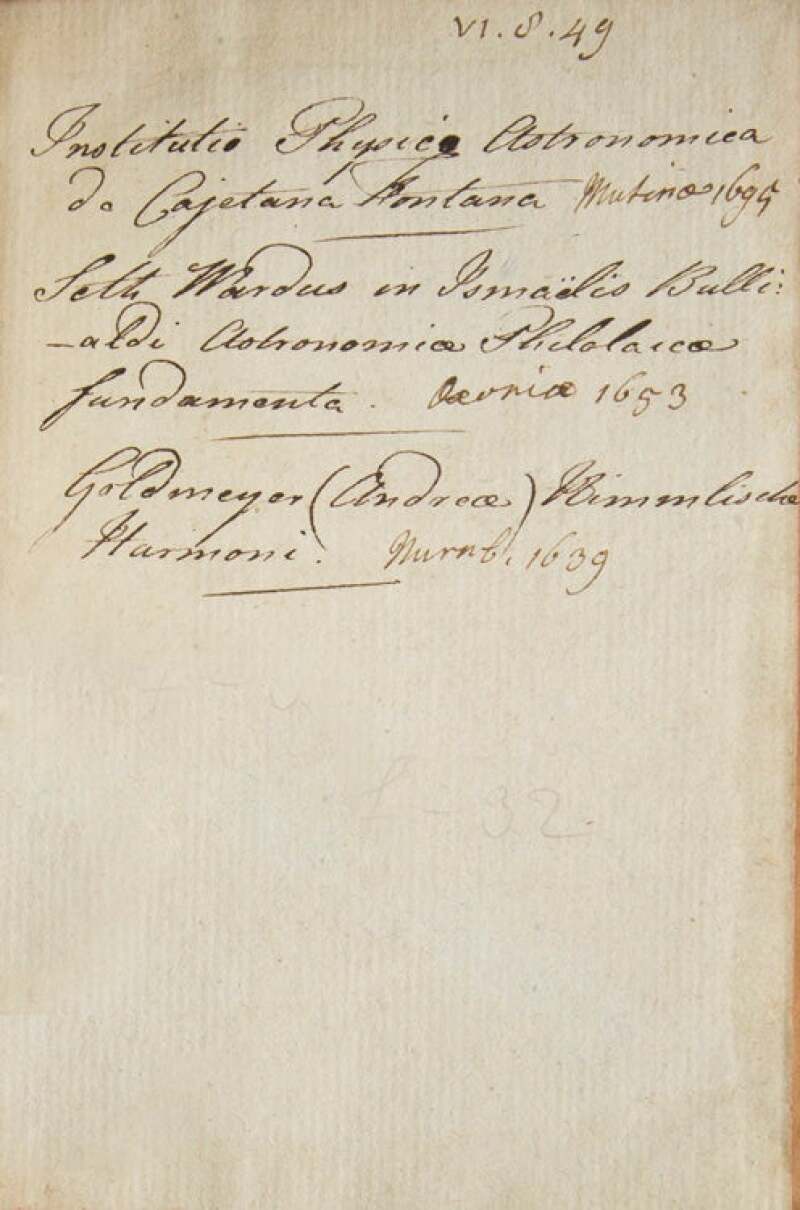 VI. 8. 49
Institutio Physico Astronomica
de Cajetana Fontana Mutinæ 1695
Seth Wardus in Ismaëlis Bulli:
-aldi Astronomiæ Philolaicæ
fundamenta. Oxoniæ 1653
Goldmeyer (Andreæ) Himmlische
Harmoni. Nurnb. 1639
32